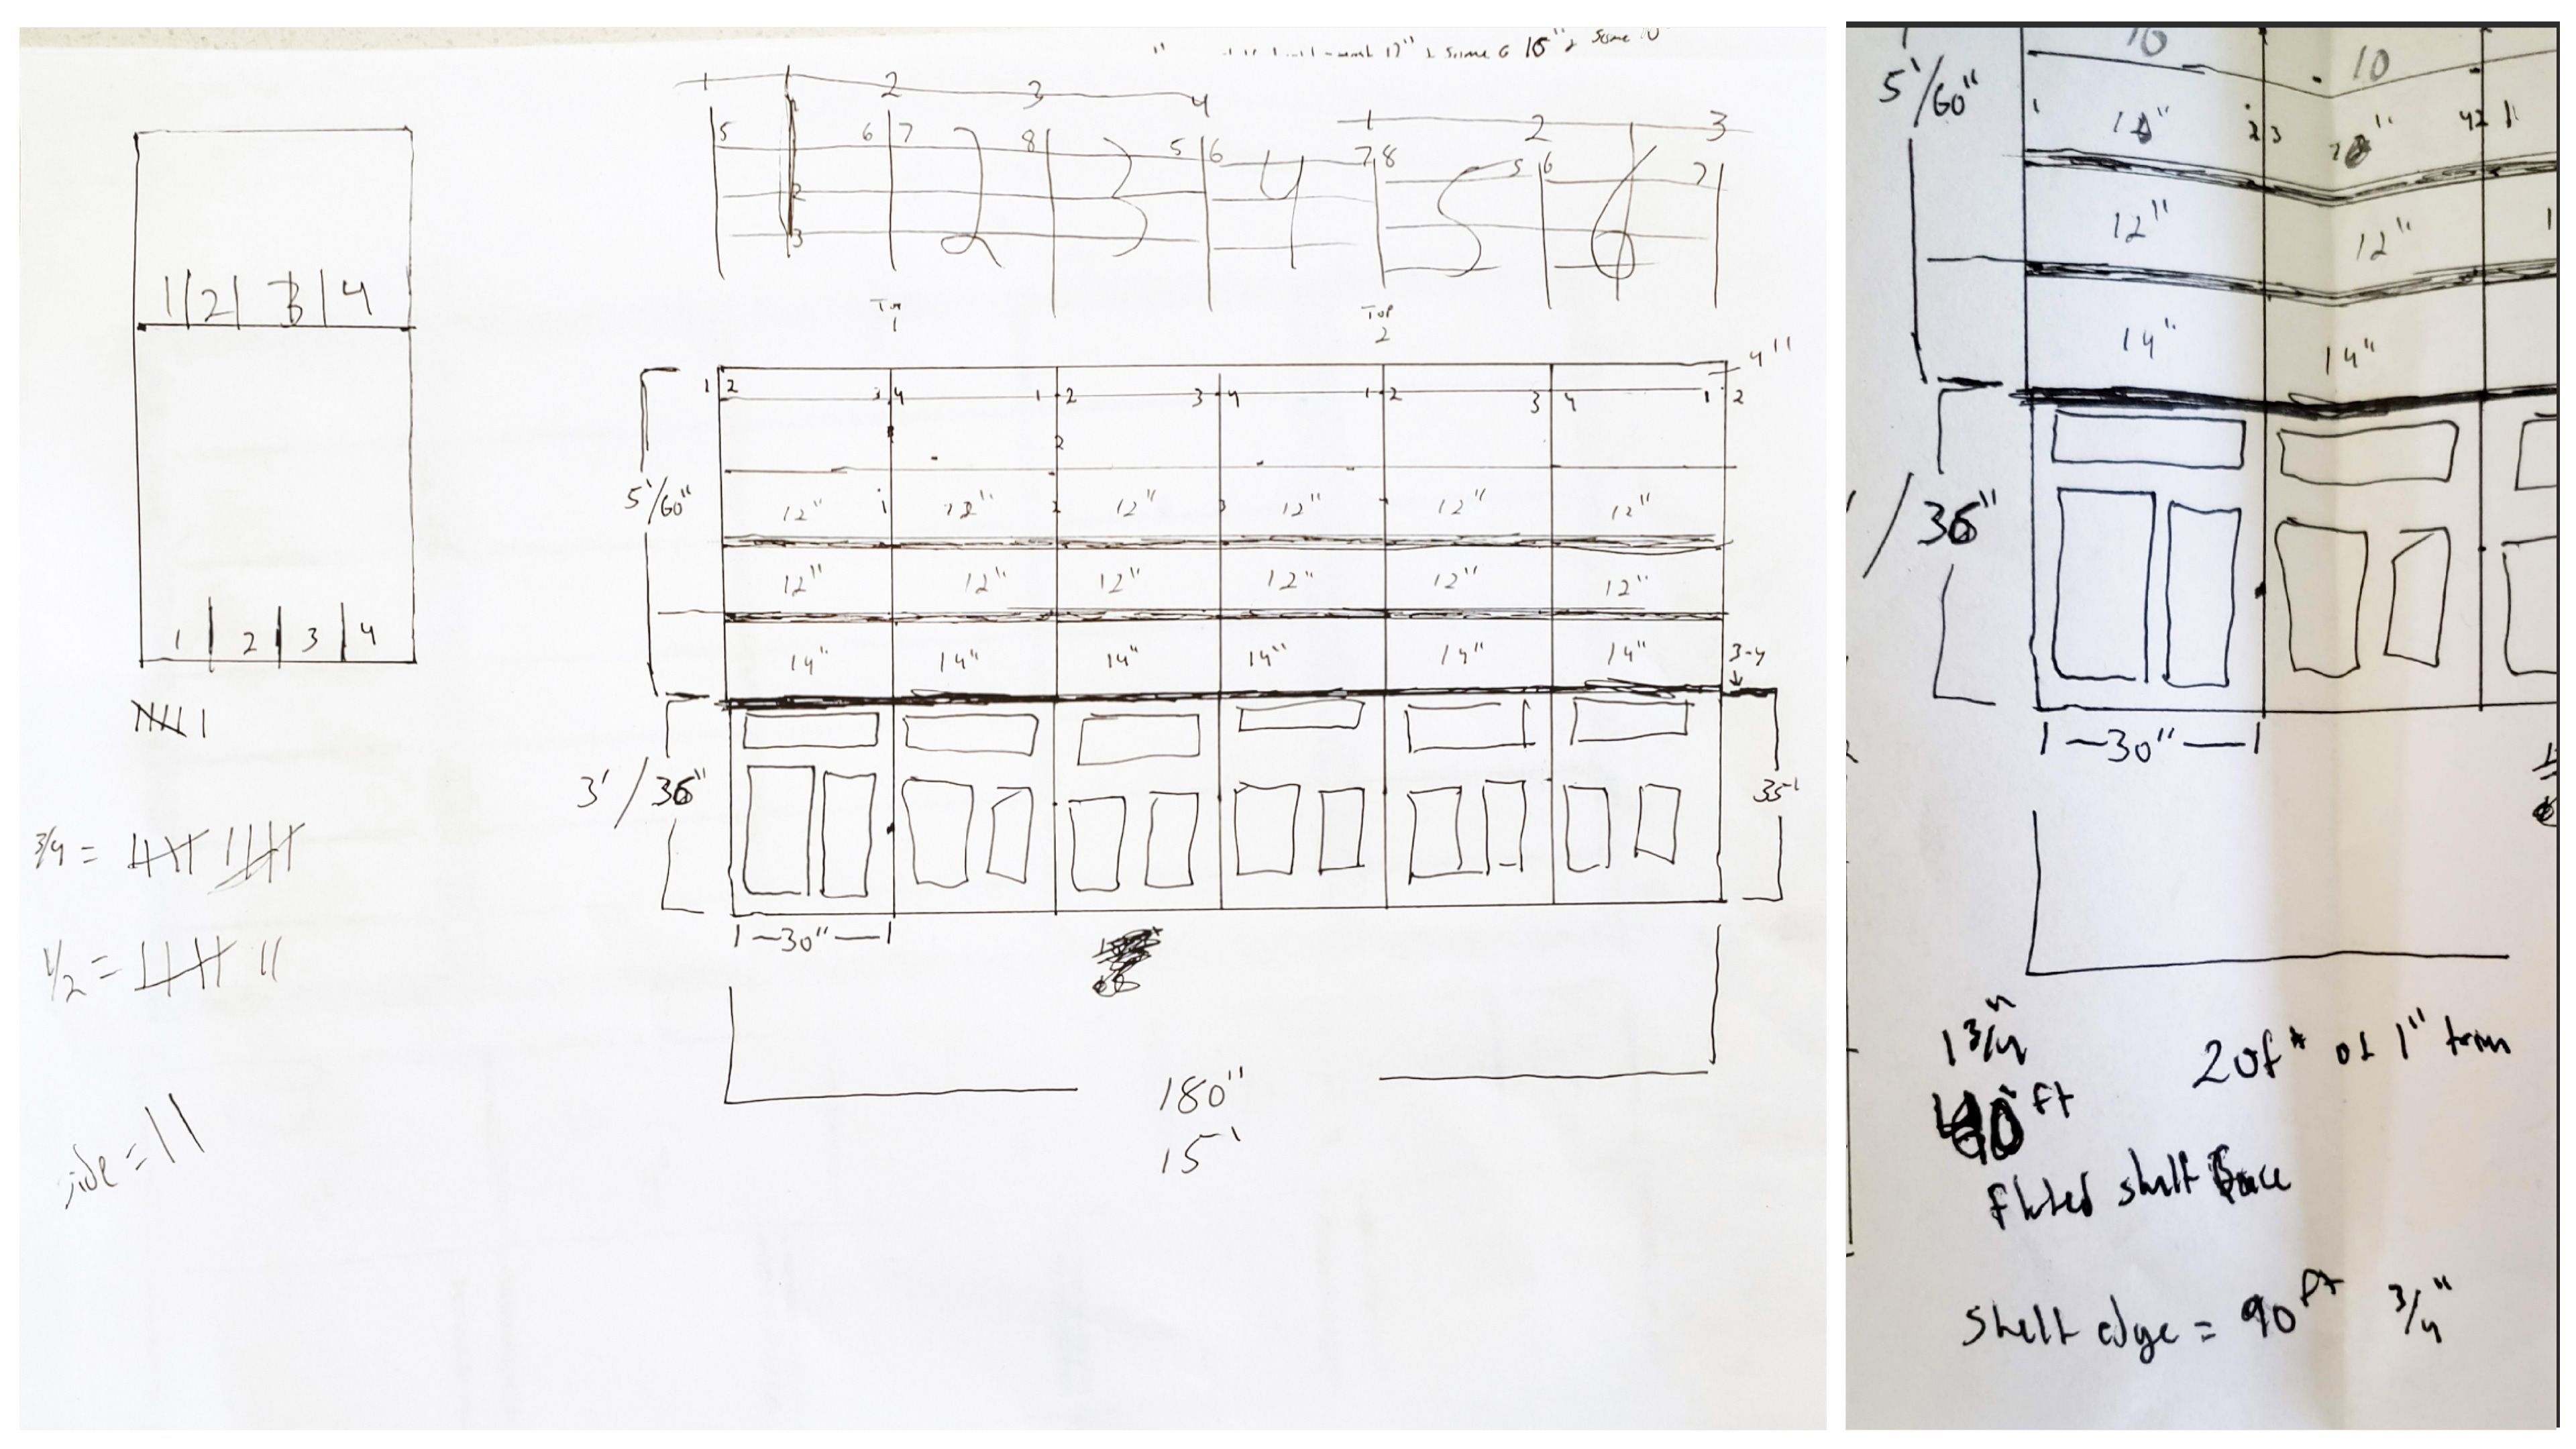 15" 2 some
1 2 3 4
1 2 3
5 6 7 8 5 6 7 8 5 6 7
2 3 4 5 6
2
3
Top
1
Top
2
1 2 3 4
4"
1 2 4 1 2 3 4 1 2 3 4 1 2
2
5'/60"
12" 12" 12" 12" 12"
12" 12" 12" 12" 12" 12"
14" 14" 14" 14" 14" 14"
3-4
1 2 3 4
3/4 =
1/2 =
side = 11
3'/36"
35-1
30"
180"
15'
10
10
5'/60"
12" 12"
14" 14"
/36"
30"
1 3/4"
ft
20ft of 1" trim
fluted shelf face
shelf edge = 90ft 3/4"